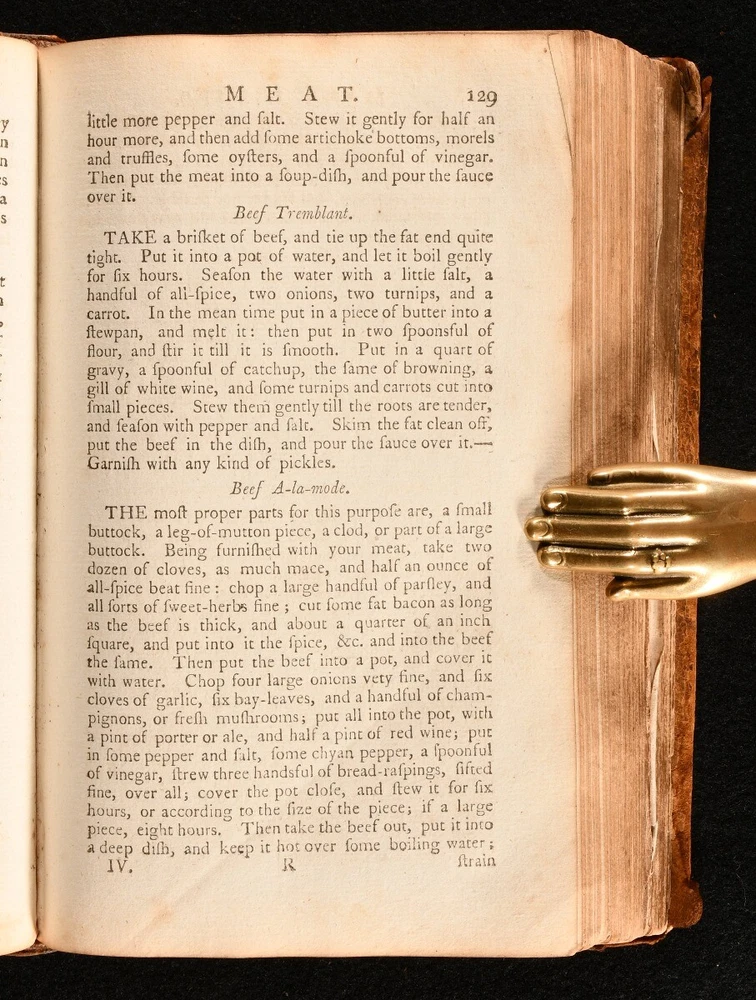 M E A T. 129
little more pepper and ſalt. Stew it gently for half an
hour more, and then add ſome artichoke bottoms, morels
and truffles, ſome oyſters, and a ſpoonful of vinegar.
Then put the meat into a ſoup-diſh, and pour the ſauce
over it.
Beef Tremblant.
TAKE a briſket of beef, and tie up the fat end quite
tight. Put it into a pot of water, and let it boil gently
for ſix hours. Seaſon the water with a little ſalt, a
handful of all-ſpice, two onions, two turnips, and a
carrot. In the mean time put in a piece of butter into a
ſtewpan, and melt it: then put in two ſpoonsful of
flour, and ſtir it till it is ſmooth. Put in a quart of
gravy, a ſpoonful of catchup, the ſame of browning, a
gill of white wine, and ſome turnips and carrots cut into
ſmall pieces. Stew them gently till the roots are tender,
and ſeaſon with pepper and ſalt. Skim the fat clean off,
put the beef in the diſh, and pour the ſauce over it.—
Garniſh with any kind of pickles.
Beef A-la-mode.
THE moſt proper parts for this purpoſe are, a ſmall
buttock, a leg-of-mutton piece, a clod, or part of a large
buttock. Being furniſhed with your meat, take two
dozen of cloves, as much mace, and half an ounce of
all-ſpice beat fine: chop a large handful of parſley, and
all ſorts of ſweet-herbs fine; cut ſome fat bacon as long
as the beef is thick, and about a quarter of an inch
ſquare, and put into it the ſpice, &c. and into the beef
the ſame. Then put the beef into a pot, and cover it
with water. Chop four large onions very fine, and ſix
cloves of garlic, ſix bay-leaves, and a handful of cham-
pignons, or freſh muſhrooms; put all into the pot, with
a pint of porter or ale, and half a pint of red wine; put
in ſome pepper and ſalt, ſome chyan pepper, a ſpoonful
of vinegar, ſtrew three handsful of bread-raſpings, ſifted
fine, over all; cover the pot cloſe, and ſtew it for ſix
hours, or according to the ſize of the piece; if a large
piece, eight hours. Then take the beef out, put it into
a deep diſh, and keep it hot over ſome boiling water;
IV. R ſtrain